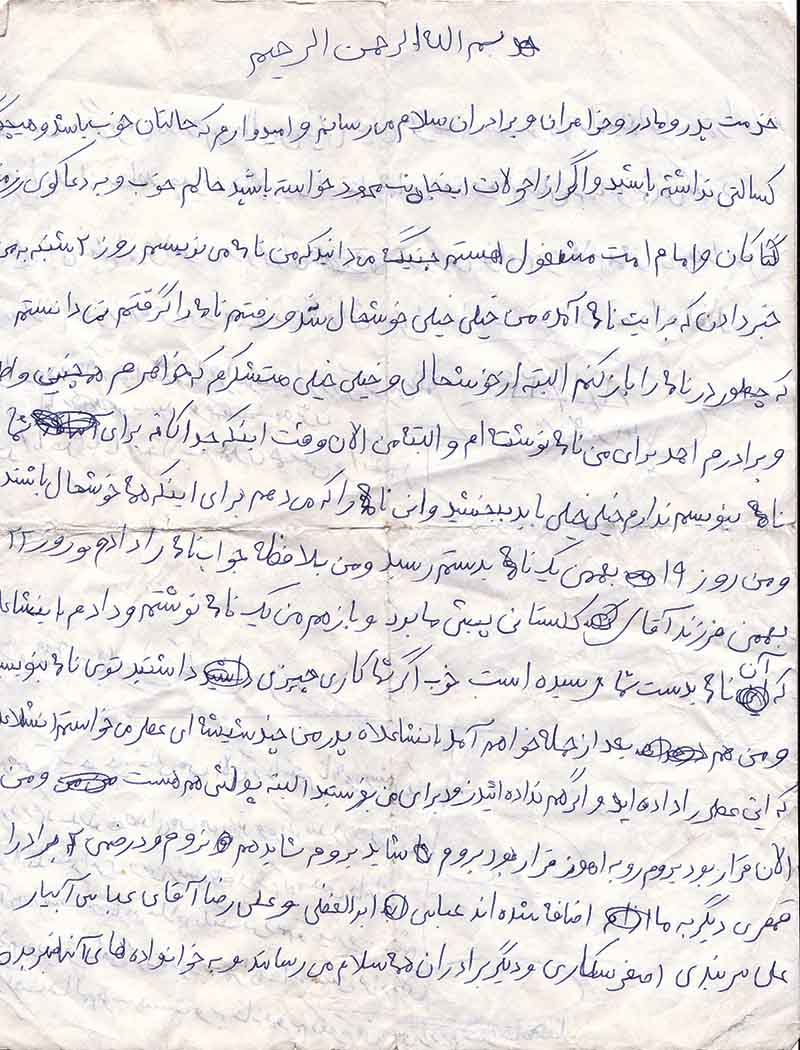 بسم الله الرحمن الرحیم
خدمت پدر و مادر و خواهران و برادران سلام می رسانم و امیدوارم که حالتان خوب باشد و هیچ
کسالتی نداشته باشید و اگر از احولات اینجانب محمود خواسته باشید حالم خوب و به دعا گوی
امام امت مشغول هستم می دانید که من نامه می نویسم روز ۲ شنبه
خبر دادن که برایت نامه آمده من خیلی خیلی خوشحال شدم و رفتم نامه را گرفتم نمی دانستم
که چطور در نامه را باز کنم البته از خوشحالی و خیلی خیلی متشکرم که خواهرم
و برادرم احمد برای من نامه نوشته ام و البته من الان وقت اینکه جداگانه برای شما
نامه بنویسم ندارم خیلی خیلی باید ببخشید و این نامه را که می دهم برای اینکه شما خوشحال باشید
و من روز ۱۹ بهمن یک نامه بدستم رسید و من بلافظه جواب نامه را دادم و روز ۲۲
بهمن فرزند آقای گلستانی پیش ما بود و باز هم من یک نامه نوشتم و دادم
که آن نامه بدست شما رسیده است خوب اگر شما کاری چیزی داشتید توی نامه
و من هم بعد از حمله خواهم آمد انشاءلاه پدر من چند شیشه ای عطر می خواستم
که این عطر را داده اید و اگر هم نداده اید زود برای من بفرستید البته پولش هم هست و من
الان قرار بود بروم رو به اهواز قرار بود بروم شاید بروم شاید هم نروم و در ضمن ۲ برادر
قمصری دیگر به ما اضافه شده اند عباس ابوالفضلی و علی رضا آقای عباس آبیار
علی سربندی اصغر سکاری و دیگر برادران همه سلام می رسانند و به خانواده های آنها